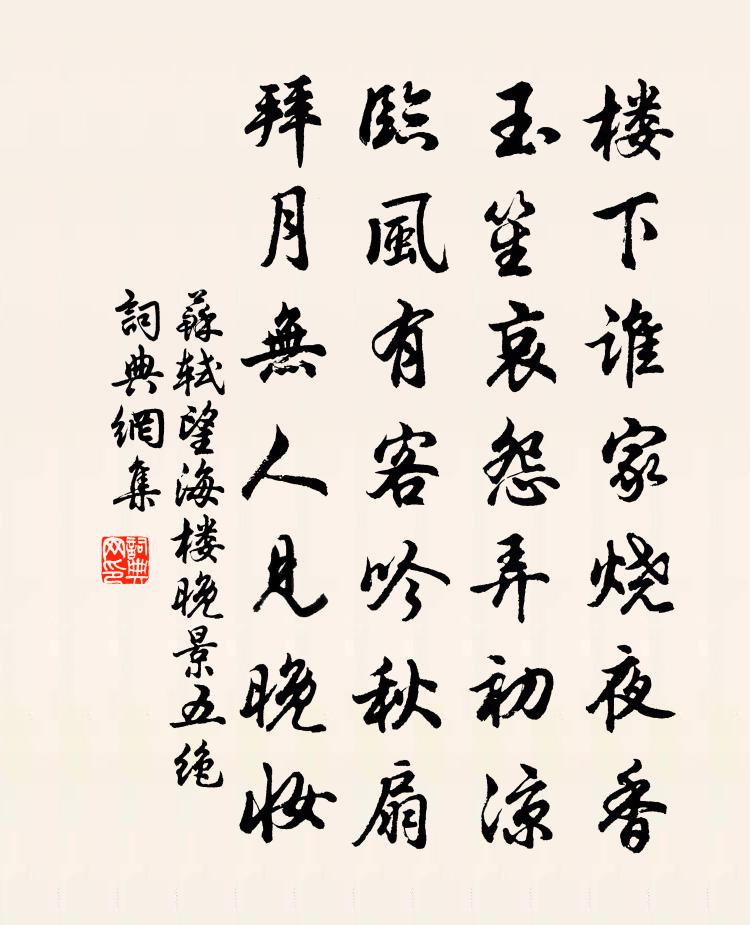 楼下谁家烧夜香
玉笙哀怨弄初凉
臨風有客吟秋扇
拜月無人見晚妆
蘇轼望海楼晚景五绝
詞典網集
詞典网印